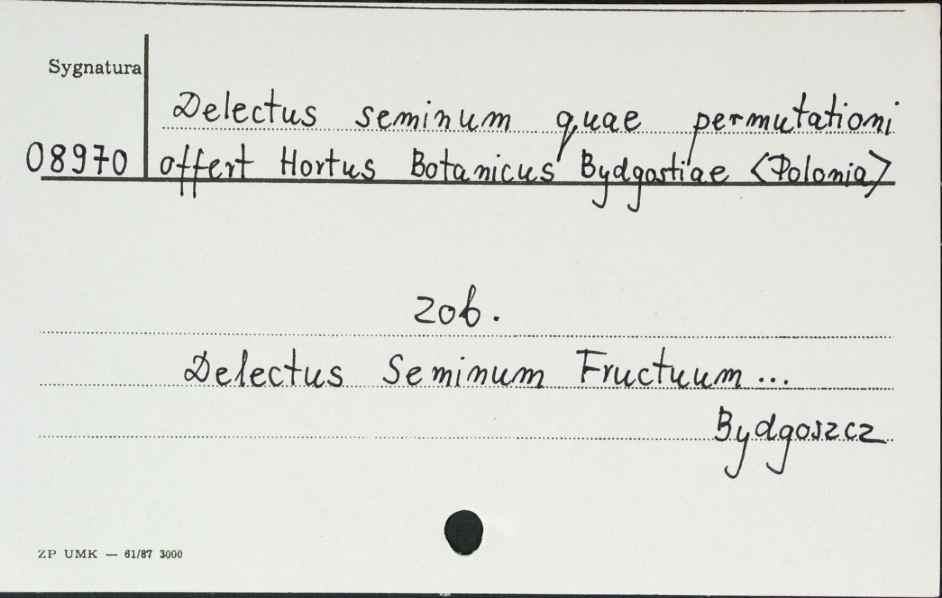 Sygnatura
Delectus seminum quae permutationi
08970 offert Hortus Botanicus Bydgostiae <Polonia>
zob.
Delectus Seminum Fructuum...
Bydgoszcz
ZP UMK — 61/87 3000